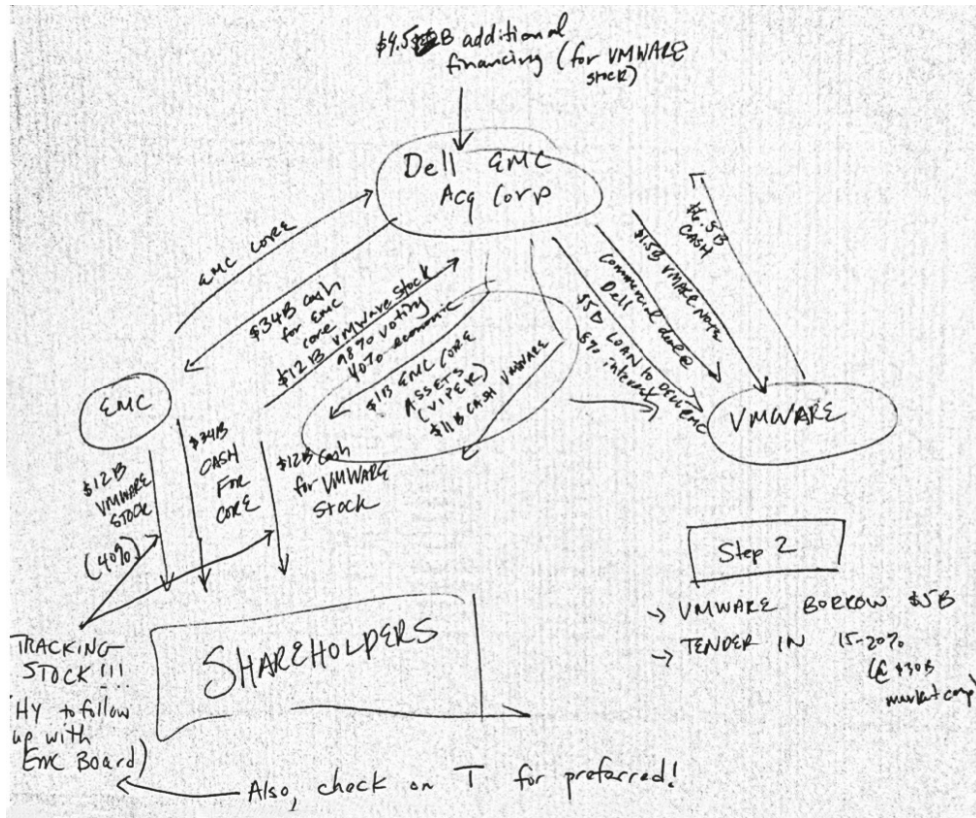 $4.5 B additional
financing (for VMWARE
stock)
Dell EMC
Acq Corp
EMC CORE
$34B cash
for EMC
core
$12B VMware Stock
98% voting
40% economic
$1B EMC CORE
ASSETS
(VIPER)
$11B CASH VMWARE
$5B LOAN TO DELL EMC
5% interest
Commercial deal @
Dell
$1.5B VMARE NOTE
CASH
EMC
VMWARE
$12B
VMWARE
STOCK
(40%)
$34B
CASH
FOR
CORE
$12B Cash
for VMWARE
Stock
Step 2
→ VMWARE BORROW $5B
→ TENDER IN 15-20%
(@ $30B
market cap)
TRACKING
STOCK!!!
(HY to follow
up with
EMC Board)
SHAREHOLDERS
Also, check on T for preferred!